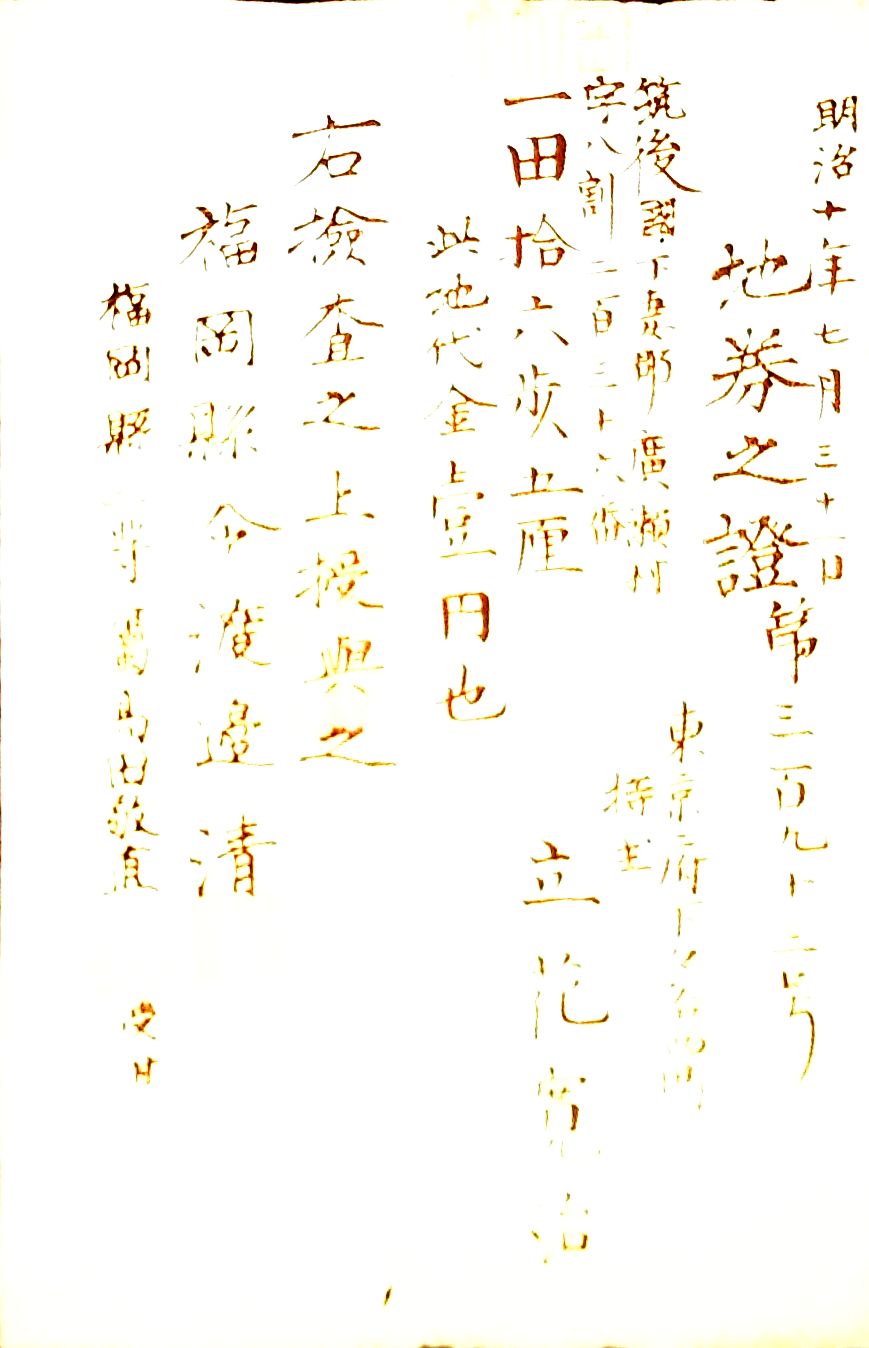 明治十年七月三十一日
地券之證
第三百九十二号
筑後國下妻郡廣瀬村
字八割二百三十六番
東京府下
持主
一田拾六歩五厘
立花
治
此地代金壹円也
右撿査之上授與之
福岡縣令渡邊清
福岡縣